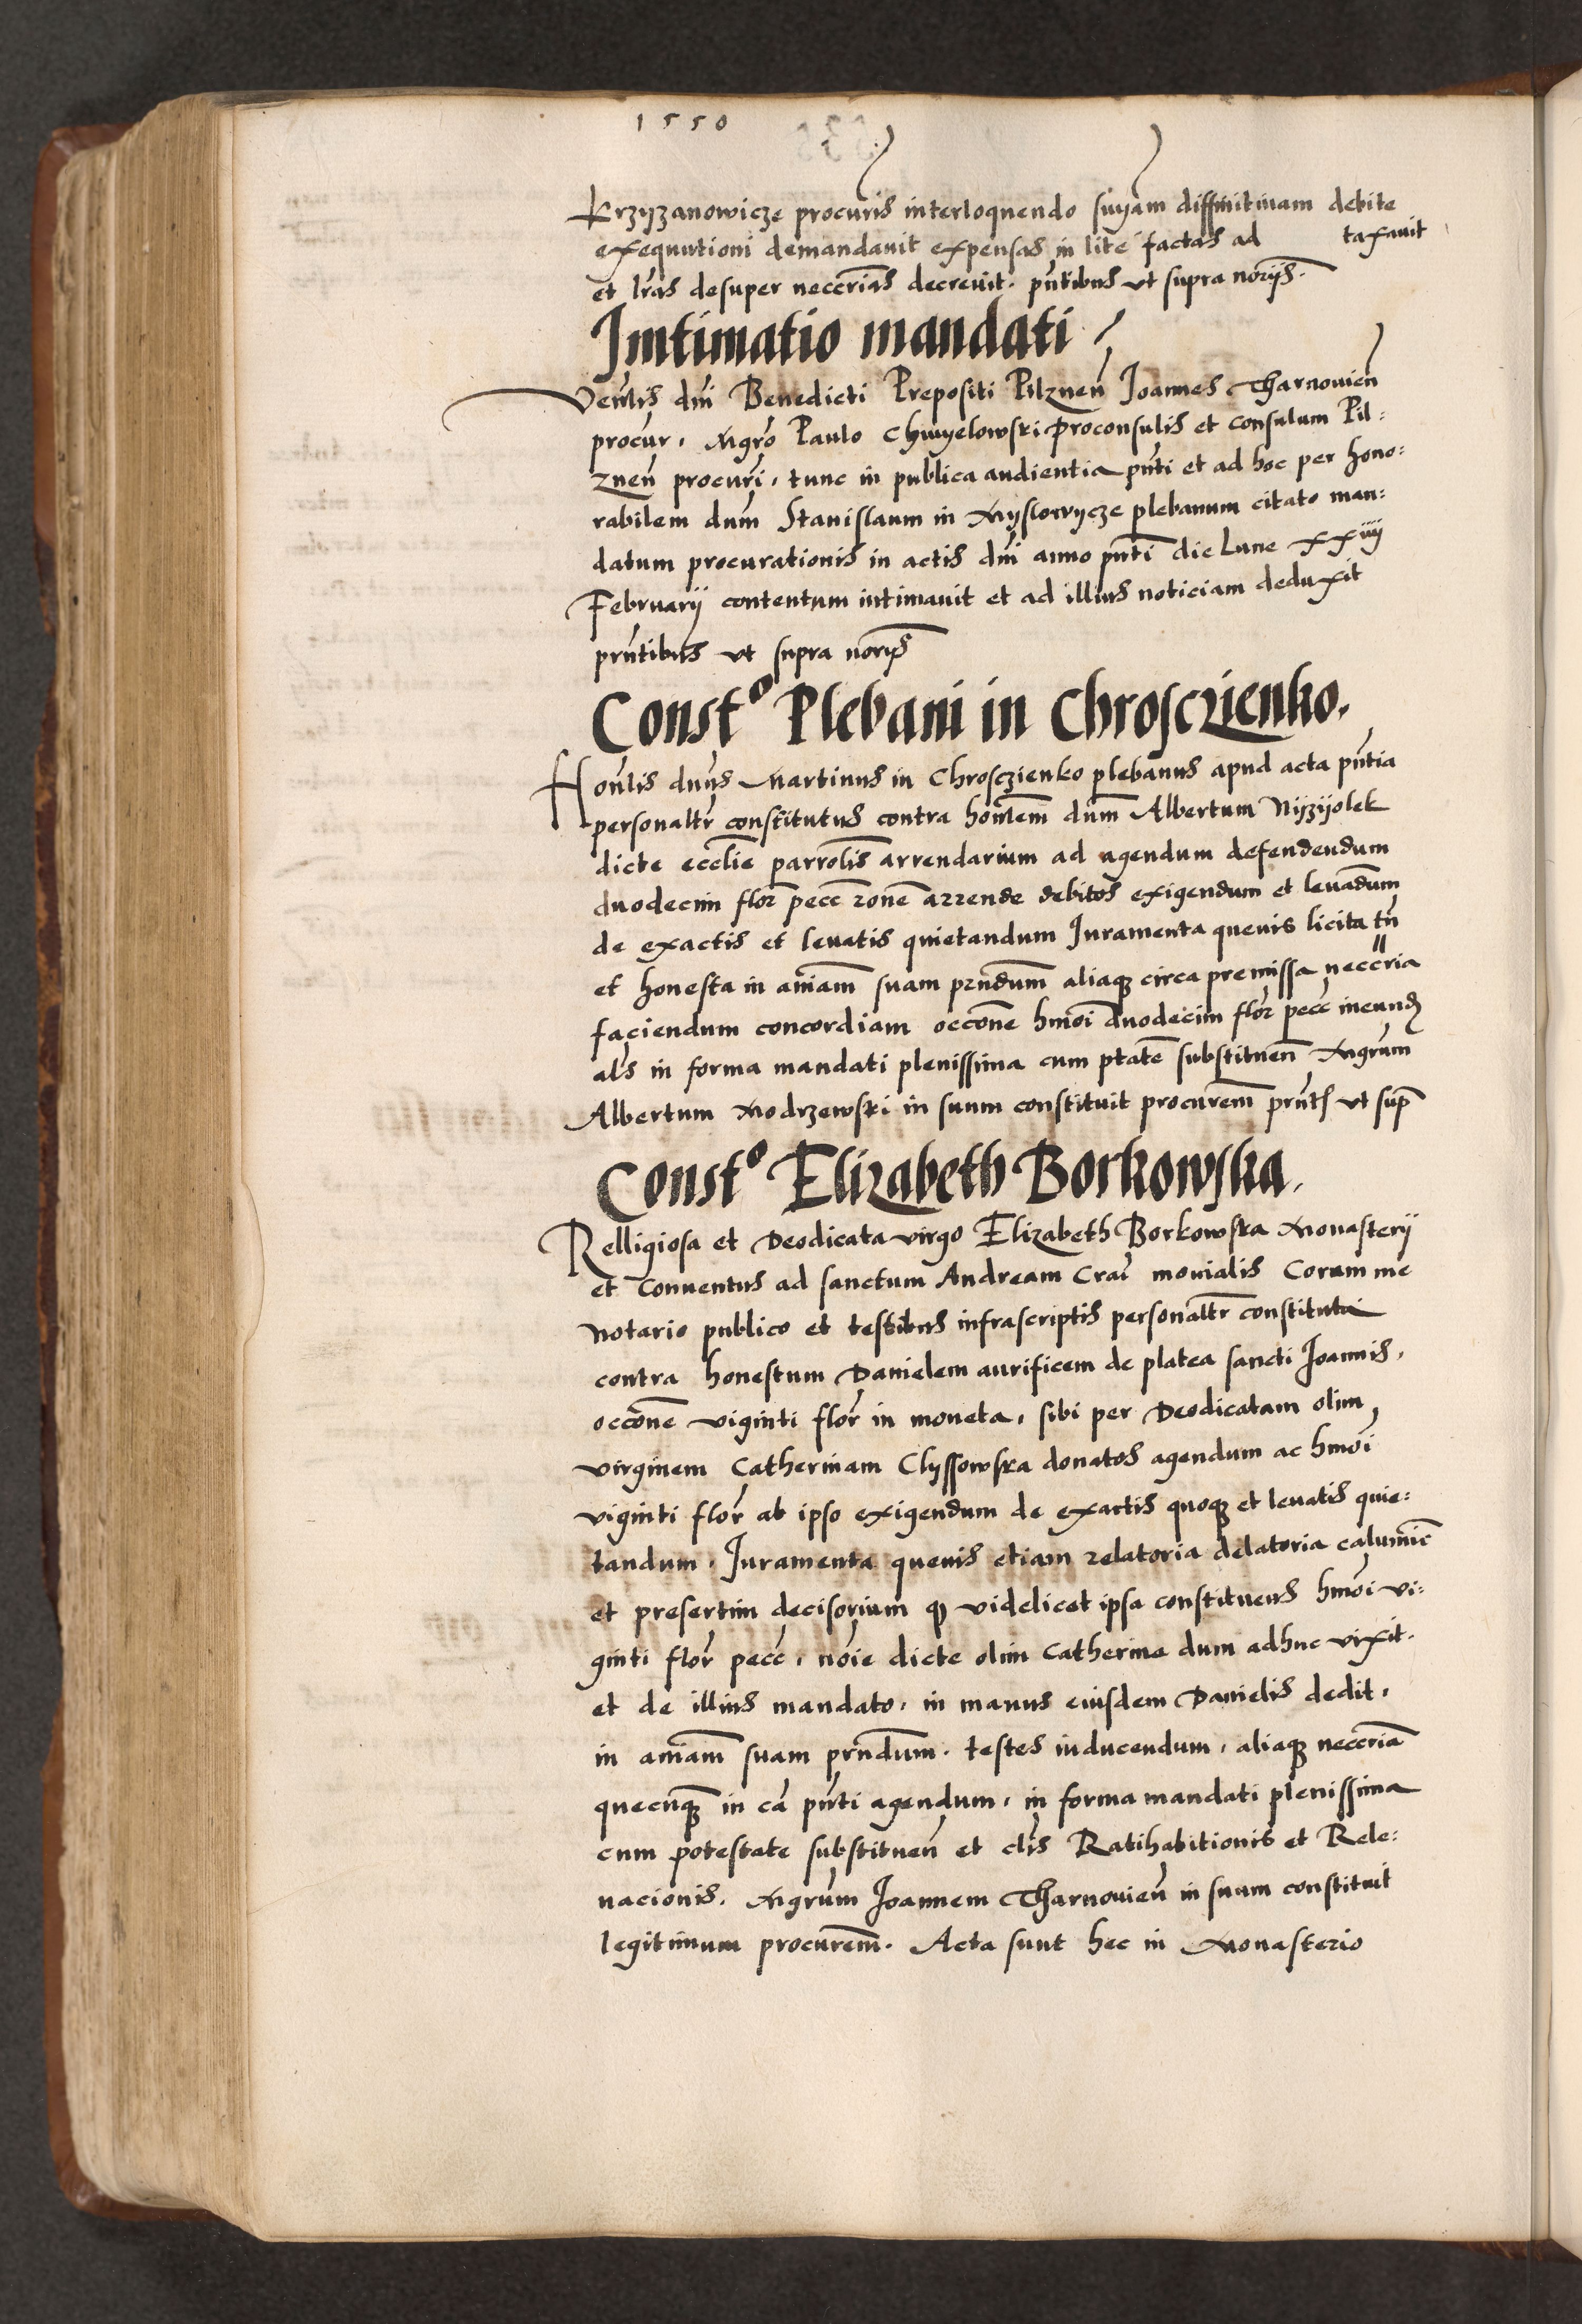 1550
Krzyzanowicze procuris interloquendo sniam diffinitivam debite
exequutioni demandavit expensas in lite factas ad taxavit
et lras desuper neccrias decrevit. pntibus ut supra noriis.
Intimatio mandati
Venlis dni Benedicti Prepositi Pilznen Joannes Tharnovien
procur. Mgro Paulo Chwyelowski Proconsulis et consulum Pil:
znen procuri, tunc in publica audientia pnti et ad hoc per hono:
rabilem dnm Stanislaum in Myslowycze plebanum citato man:
datum procurationis in actis dni anno pnti die Lune xxiiii
Februarii contentum intimavit et ad illius noticiam deduxit
prntibus ut supra noriis
Constº Plebani in Chrosczienko.
Honlis dnus Martinus in Chrosczienko plebanus apud acta pntia
personaltr constitutus contra honlem dnm Albertum Nyzyolek
dicte ecclie parrolis arrendarium ad agendum defendendum
duodecim flor pecc rone arrende debitos exigendum et levandum
de exactis et levatis quietandum Juramenta quevis licita tn
et honesta in aniam suam prndum aliaque circa premissa neccria
faciendum concordiam occone hmoi duodecim flor pecc ineund
als in forma mandati plenissima cum ptate substituen Mgrum
Albertum Modrzewski in suum constituit procurem prnts ut sup
Constº Elizabeth Borkowska.
Relligiosa et Deodicata virgo Elizabeth Borkowska Monasterii
et Conventus ad sanctum Andream Crac monialis Coram me
Notario publico et testibus infrascriptis personaltr constituta
contra honestum Danielem aurificem de platea sancti Joannis,
occone viginti flor in moneta, sibi per Deodicatam olim
virginem Catherinam Clyssowska donatos agendum ac hmoi
viginti flor ab ipso exigendum de exactis quoque et levatis quie:
tandum, Juramenta quevis etiam relatoria delatoria calumnie
et presertim decisorium quod videlicet ipsa constituens hmoi vi:
ginti flor pecc, noie dicte olim Catherine dum adhuc vixit.
et de illius mandato, in manus eiusdem Danielis dedit,
in aniam suam prndum. testes inducendum, aliaque neccria
quecunque in ca pnti agendum, in forma mandati plenissima
cum potestate substituen et clis Ratihabitionis et Rele:
vacionis. Mgrum Joannem Tharnovien in suum constituit
legitimum procurem. Acta sunt hec in Monasterio